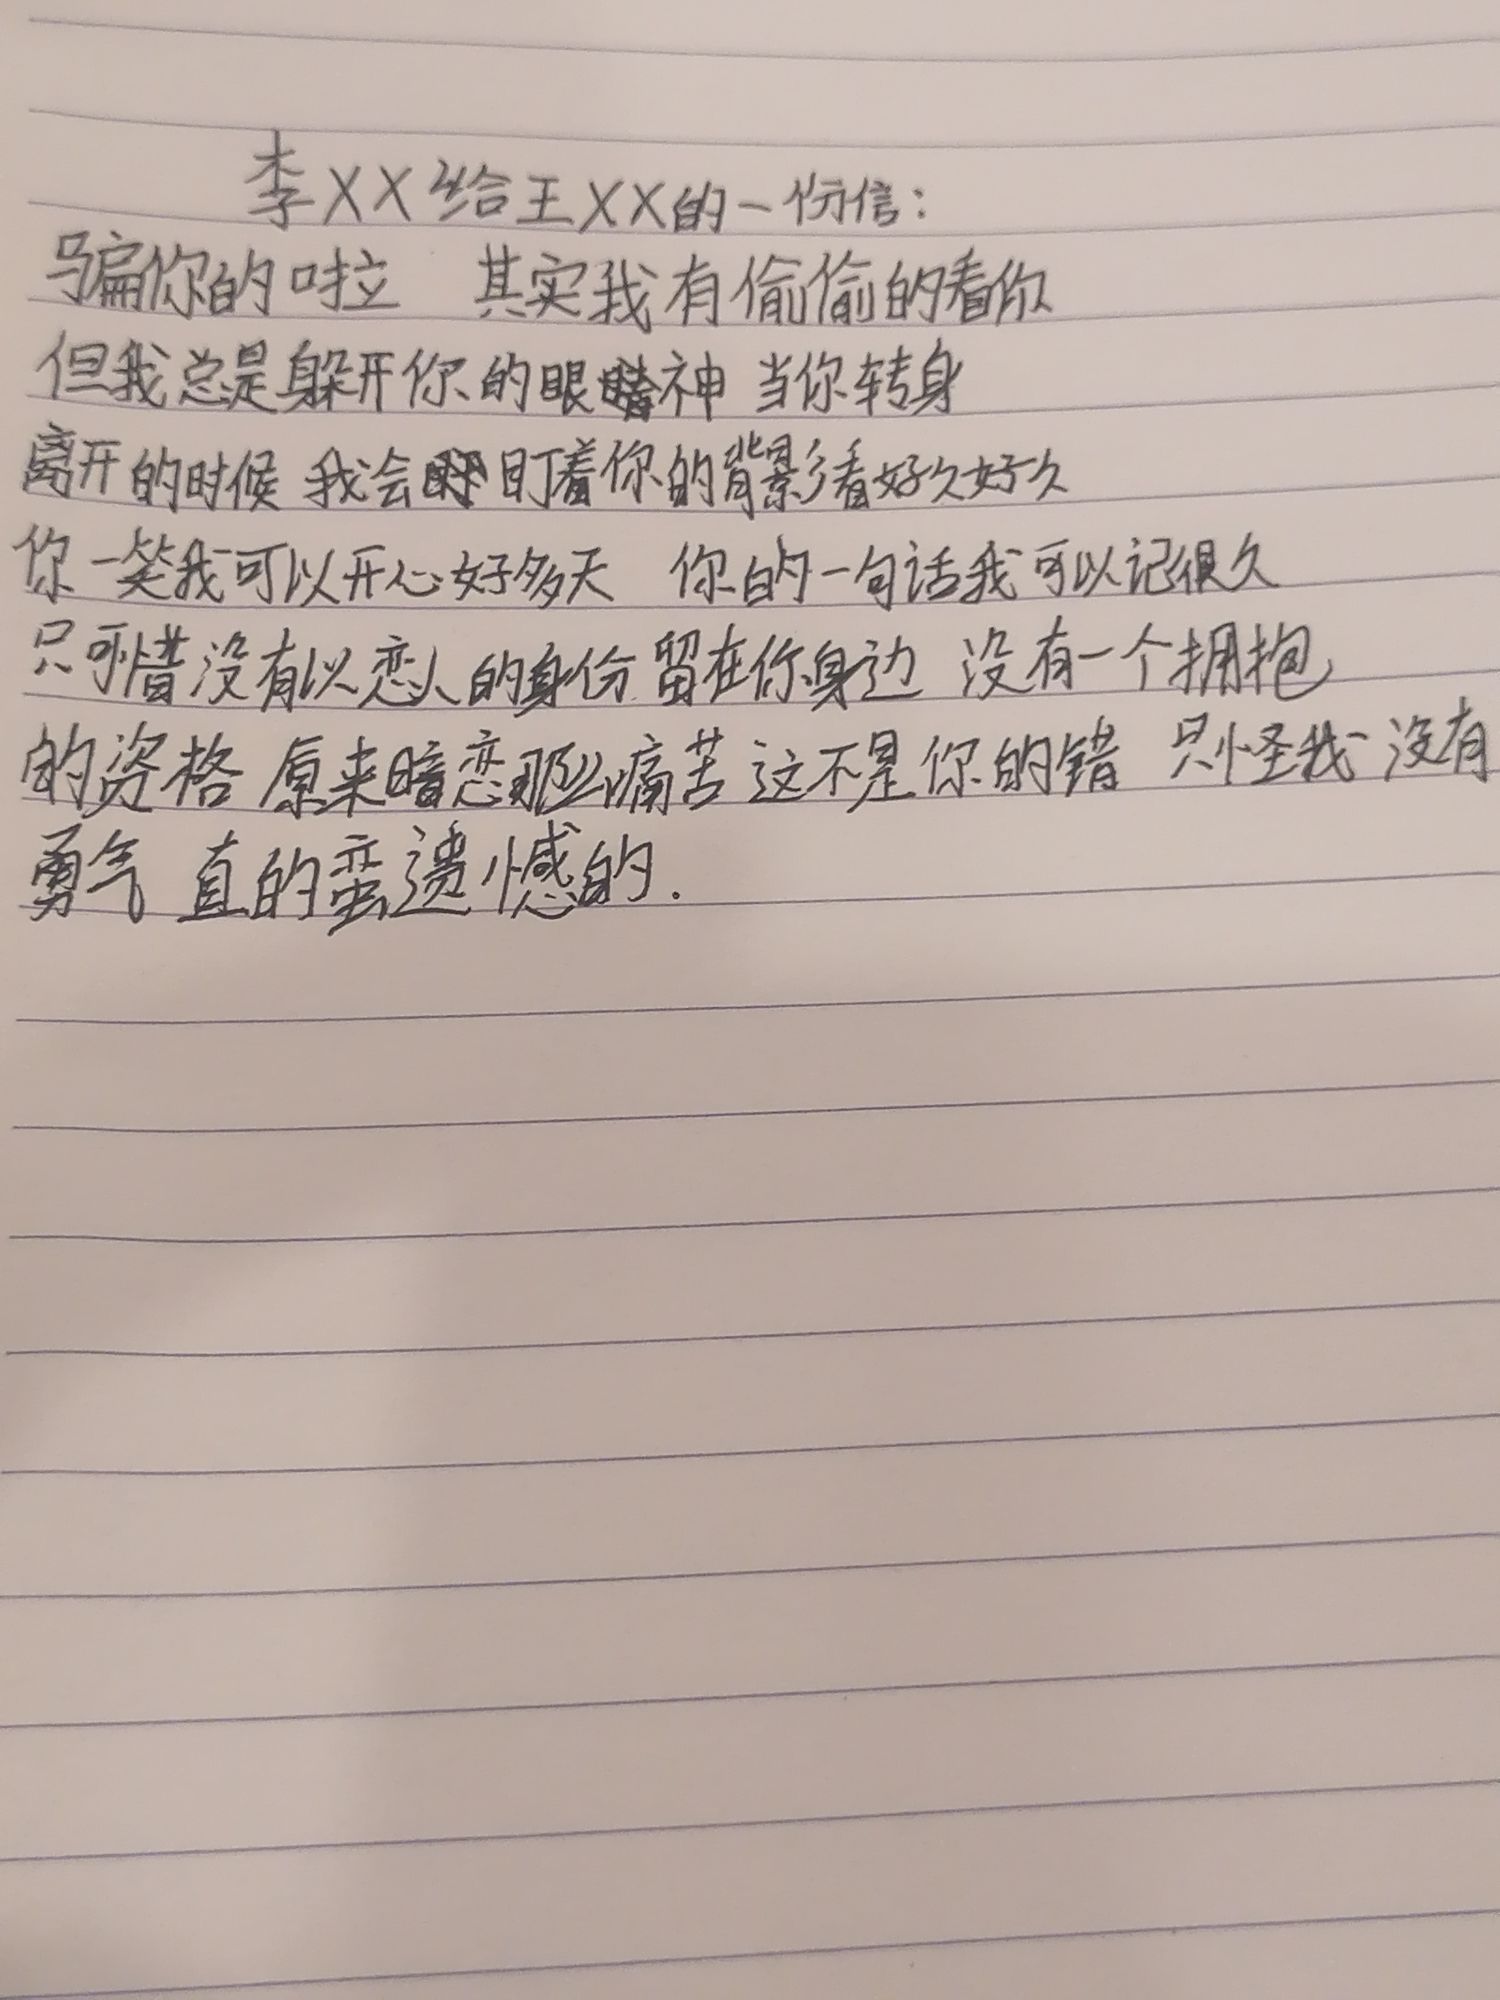 李XX给王XX的一份信:
骗你的啦 其实我有偷偷的看你
但我总是躲开你的眼神 当你转身
离开的时候 我会盯着你的背影看好久好久
你一笑我可以开心好多天 你的一句话我可以记很久
只可惜没有以恋人的身份留在你身边 没有一个拥抱
的资格 原来暗恋那么痛苦 这不是你的错 只怪我没有
勇气 真的蛮遗憾的.